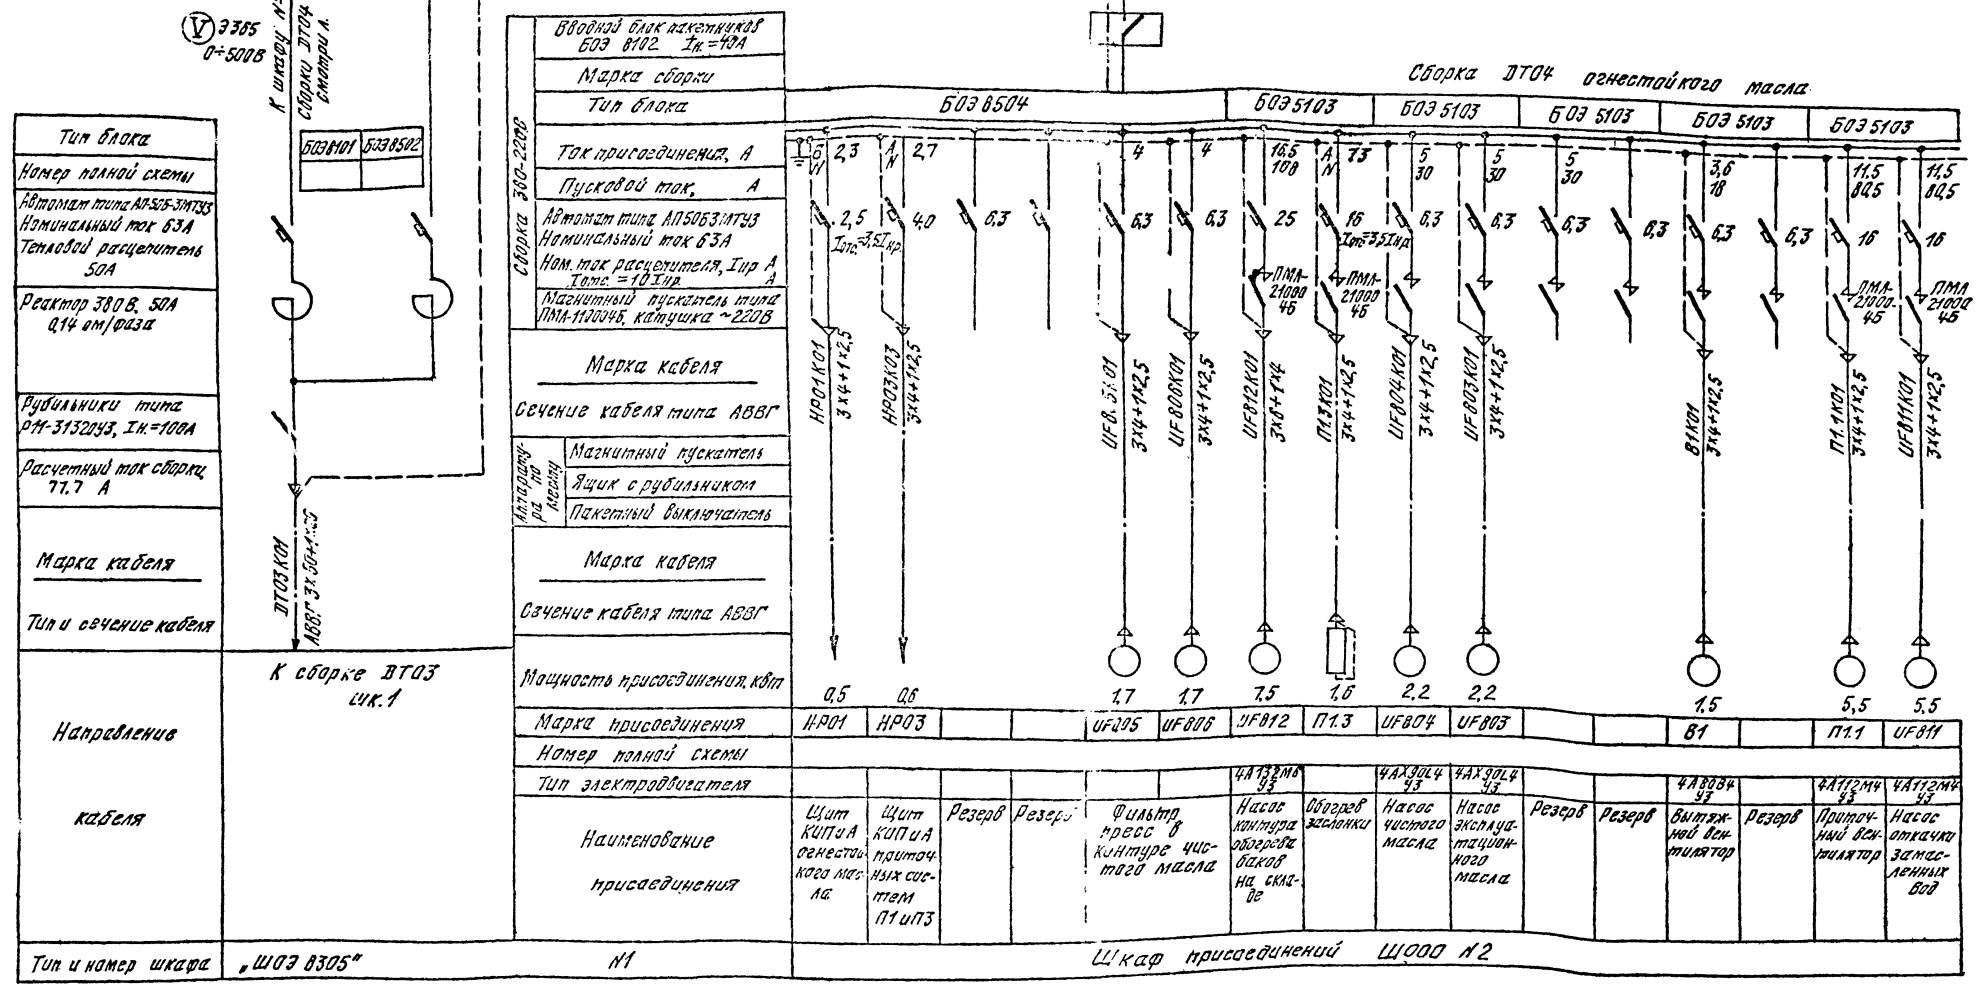 V Э365
0÷500В
К шкафу №
Сборки DT04
Смотри л.
Тип блока
Номер полной схемы
Автомат типа АП-50Б-3МТУ3
Номинальный ток 63А
Тепловой расцепитель
50А
Реактор 380 В, 50А
0,14 ом/фаза
Рубильники типа
Iн.=100А
Расчетный ток сборки,
77.7 А
Марка кабеля
Тип и сечение кабеля
Направление
кабеля
Тип и номер шкафа
БОЭ8101 БОЭ8502
DT03K01
АВВГ 3х50+1х25
К сборке DT03
шк.1
„ШОЭ 8305" N1
Сборка 380-220В
Вводной блок пакетников
БОЭ 8102 Iн.=40А
Марка сборки
Тип блока
Ток присоединения, А
Пусковой ток, А
Автомат типа АП50Б3МТУ3
Номинальный ток 63А
Ном. ток расцепителя, Iнр А
Iотс.=10Iнр. А
Магнитный пускатель типа
ПМЛ-110004Б, катушка ~220В
Марка кабеля
Сечение кабеля типа АВВГ
Аппарату-
ра по
месту
Магнитный пускатель
Ящик с рубильником
Пакетный выключатель
Марка кабеля
Сечение кабеля типа АВВГ
Мощность присоединения, квт
Марка присоединения
Номер полной схемы
Тип электродвигателя
Наименование
присоединения
Сборка DT04 огнестойкого масла
БОЭ 8504 БОЭ 5103 БОЭ 5103 БОЭ 5103 БОЭ 5103 БОЭ 5103
N 2,3 A N 2,7 4 4 16,5 A N 7,3 5 5 5 3,6 11,5 11,5
108 30 30 30 18 80,5 80,5
2,5 4,0 6,3 6,3 6,3 25 16 6,3 6,3 6,3 6,3 6,3 6,3 16 16
Iотс.=3,5Iнр. Iотс.=3,5Iнр
ПМЛ-
21000
4Б
ПМЛ-
21000
4Б
ПМЛ-
21000-
4Б
ПМЛ
21000
4Б
НР01К01
3х4+1х2,5
НР03К03
3х4+1х2,5
3х4+1х2,5
UF806К01
3х4+1х2,5
UF812К01
3х8+1х4
П1.3К01
3х4+1х2,5
UF804К01
3х4+1х2,5
UF803К01
3х4+1х2,5
В1К01
3х4+1х2,5
П1.1К01
3х4+1х2,5
UF811К01
3х4+1х2,5
0,5 0,6 1,7 1,7 7,5 1,6 2,2 2,2 1,5 5,5 5,5
НР01 НР03 UF805 UF806 UF812 П1.3 UF804 UF803 В1 П1.1 UF811
4А132М6
У3
4АХ90L4
У3
4АХ90L4
У3
4А80В4
У3
4А112М4
У3
4А112М4
У3
Щит
КИПиА
огнестой
кого мас-
ла
Щит
КИПиА
приточ-
ных сис-
тем
П1 и П3
Резерв
Резерв
Фильтр
пресс в
контуре чис-
того масла
Насос
контура
обогрева
баков
на скла-
де
Обогрев
заслонки
Насос
чистого
масла
Насос
эксплуа-
тацион-
ного
масла
Резерв
Резерв
Вытяж-
ной вен-
тилятор
Резерв
Приточ-
ный вен-
тилятор
Насос
откачки
замас-
ленных
вод
Шкаф присоединений ЩО00 N2